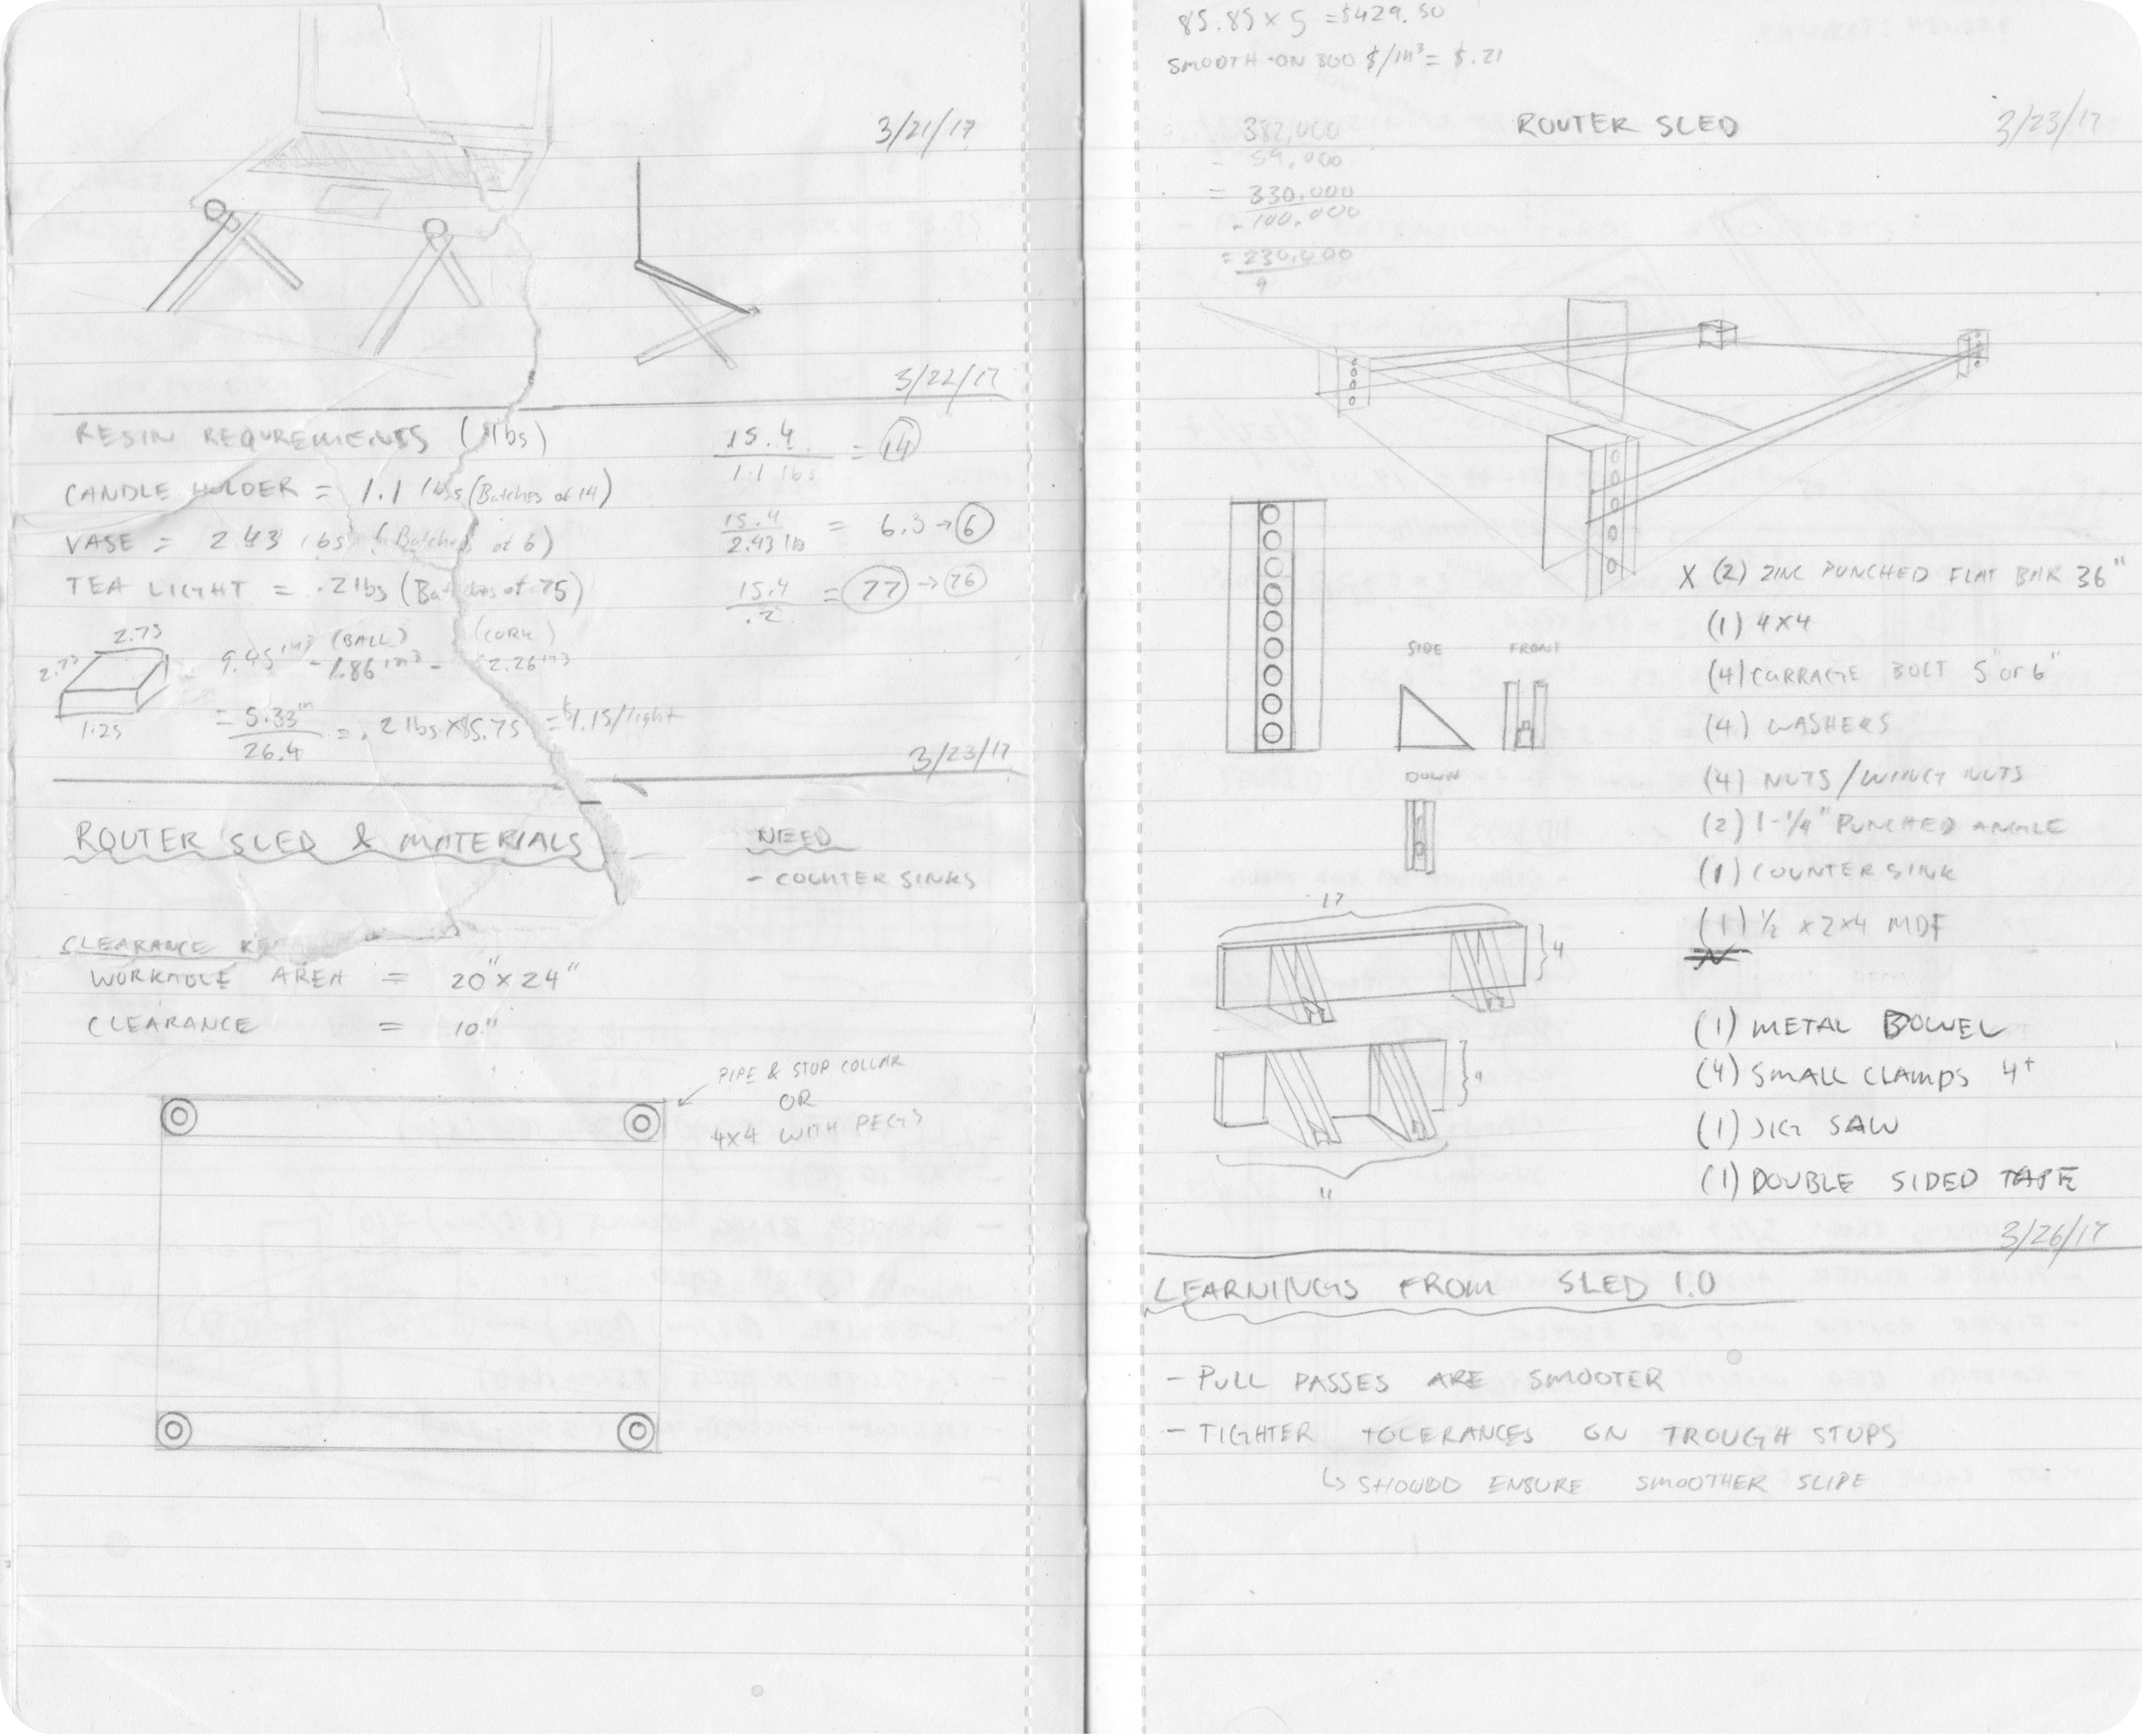 3/21/17
3/22/17
RESIN REQUREMENTS (lbs)
CANDLE HOLDER = 1.1 lbs (Batches of 14)
VASE = 2.43 lbs (Batches of 6)
TEA LIGHT = .2 lbs (Batches of 75)
15.4 / 1.1 lbs = 14
15.4 / 2.43 lb = 6.3 → 6
15.4 / .2 = 77 → 76
2.75
2.75
1.25
(BALL) (CORK)
9.45 in³ - 1.86 in³ - 2.26 in³
= 5.33 in / 26.4 = .2 lbs × $5.75 = $1.15/light
3/23/17
ROUTER SLED & MATERIALS
NEED
- COUNTER SINKS
CLEARANCE
WORKABLE AREA = 20" x 24"
CLEARANCE = 10"
PIPE & STOP COLLAR
OR
4x4 WITH PEGS
85.85 x 5 = $429.50
SMOOTH-ON 300 $/in³ = $.21
382,000
- 59,000
= 330,000
- 100,000
= 230,000
ROUTER SLED
3/23/17
X (2) ZINC PUNCHED FLAT BAR 36"
(1) 4x4
(4) CARRAGE BOLT 5" or 6"
(4) WASHERS
(4) NUTS / WING NUTS
(2) 1-1/4" PUNCHED ANGLE
(1) COUNTER SINK
(1) 1/2 x 2x4 MDF
(1) METAL DOWEL
(4) SMALL CLAMPS 4+
(1) JIG SAW
(1) DOUBLE SIDED TAPE
SIDE FRONT
DOWN
17
4
11
3/26/17
LEARNINGS FROM SLED 1.0
- PULL PASSES ARE SMOOTER
- TIGHTER TOLERANCES ON TROUGH STOPS
↳ SHOUDD ENSURE SMOOTHER SLIDE